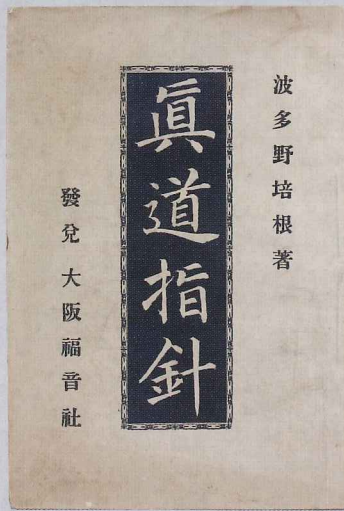 波多野培根著
眞道指針
發兌 大阪福音社